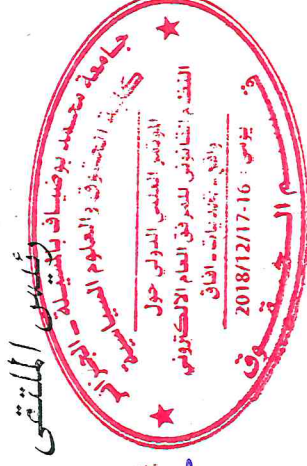 رئيس الملتقى
جامعة محمد بوضياف بالمسيلة - الجزائر
كلية الحقوق والعلوم السياسية
المؤتمر العلمي الدولي حول
النظام القانوني للمرفق العام الالكتروني
واقع - تحديات - آفاق
يومي : 16-17/12/2018
قسم الحقوق